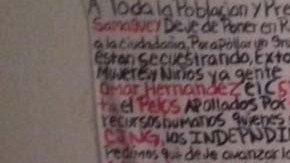 A Toda la Poblacion y Pre
Samaguey Deve de Poner en R
a la ciudadania, Para Pollar un Gru
estan secuestrando, Exto
Mujeres y Niños ya gente
Omar Hernandez el C
ta el Pelos Apollados Por
recursos humanos quienes
CJNG, los INDEPNDI
Pedimos que deve avanzar la